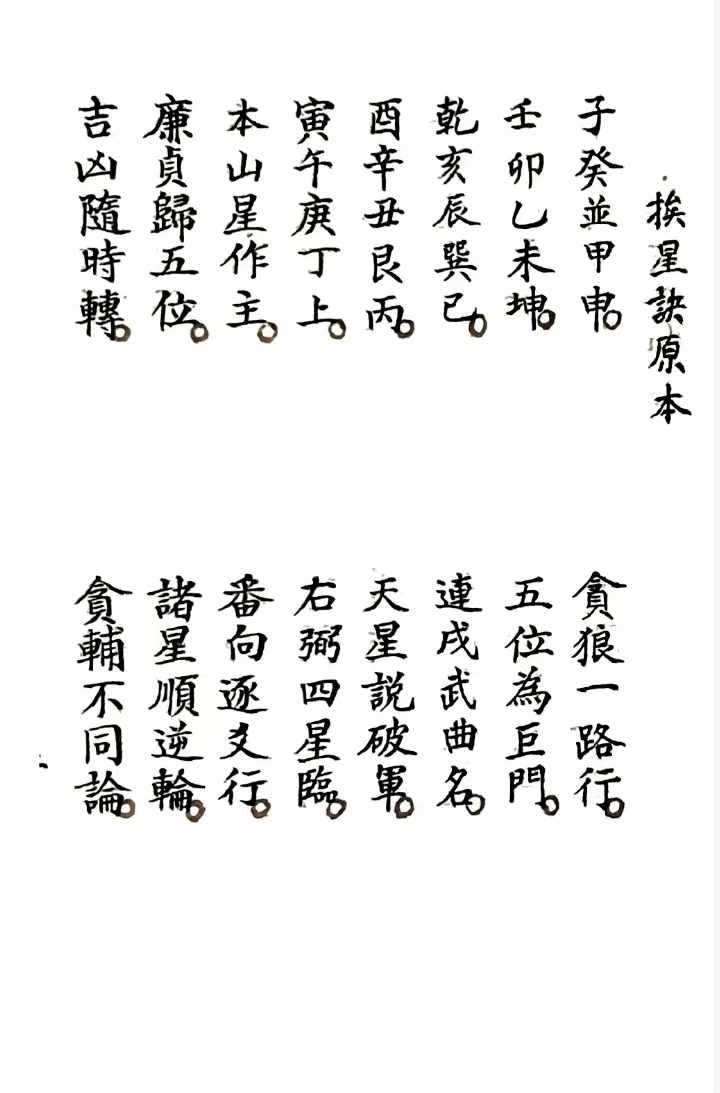 挨星訣原本
子癸並甲申。
貪狼一路行。
壬卯乙未坤。
五位為巨門。
乾亥辰巽巳。
連戌武曲名。
酉辛丑艮丙。
天星説破軍。
寅午庚丁上。
右弼四星臨。
本山星作主。
番向逐爻行。
廉貞歸五位。
諸星順逆輪。
吉凶隨時轉。
貪輔不同論。